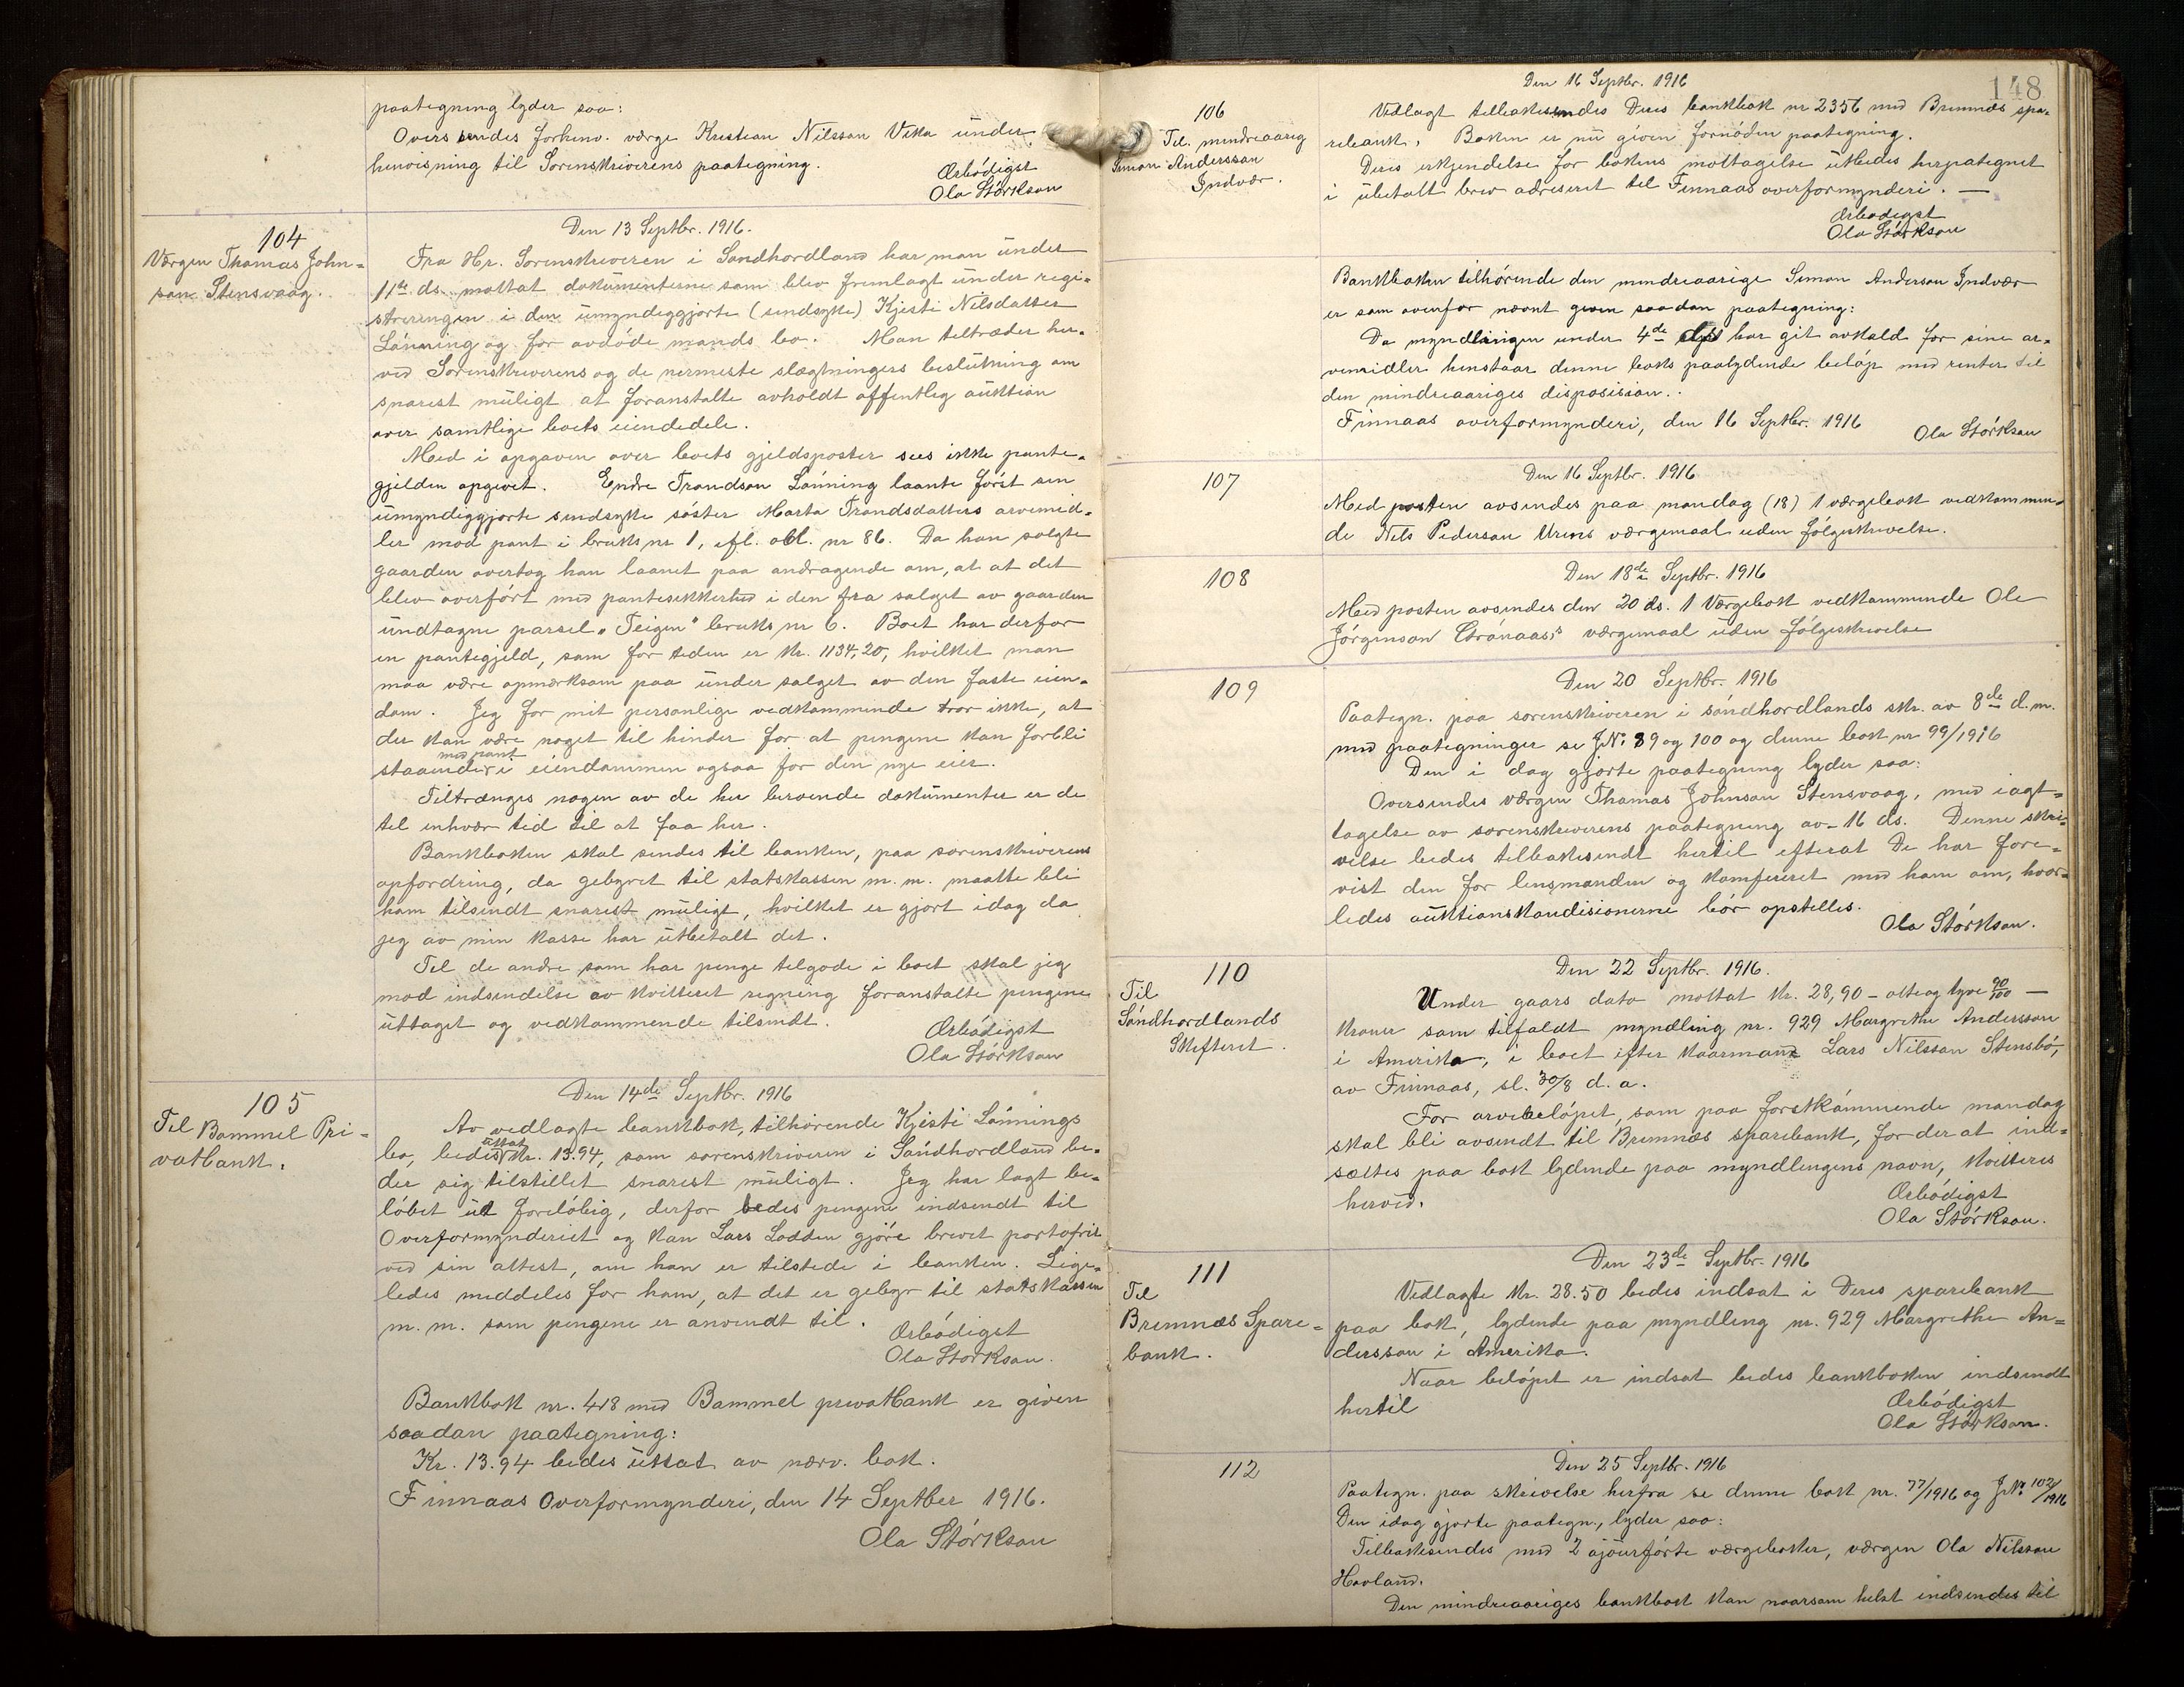 paategning lyder saa:
Oversendes forhenv. værge Kristian Nilsson Vika under
henvisning til Sorenskriverens paategning.
Ærbødigst
Ola Størkson
104
Værgen Thomas John=
son Stensvaag.
Den 13 Septbr. 1916.
Fra Hr. Sorenskriveren i Søndhordland har man under
11te ds. mottat dokumenterne som blev fremlagt under regi-
streringen i den umyndiggjorte (sindsyke) Kjesti Nilsdatter
Lønning og for avdøde mands bo. Man tiltræder her-
ved Sorenskriverens og de nermeste slægtningers beslutning om
snarest muligt at foranstalte avholdt offentlig auktion
over samtlige boets eiendele.
Med i opgaven over boets gjeldsposter sees ikke pante-
gjelden opgivet. Endre Trondson Lønning laante først sin
umyndiggjorte sindsyke søster Marta Trondsdatters arvemid-
ler mod pant i bruks nr 1, efl. obl. nr 86. Da han solgte
gaarden overtog han laanet paa andragende om, at at det
blev overført med pantesikkerhed i den fra salget av gaarden
undtagne parsel „Teigen" bruks nr 6. Boet har derfor
en pantegjeld, som for tiden er Kr. 1134,20, hvilket man
maa være opmerksom paa under salget av den faste eien-
dom. Jeg for mit personlige vedkommende tror ikke, at
der kan være noget til hinder for at pengene kan forbli
med pant
staaende i eiendommen ogsaa for den nye eier.
Tiltrænges nogen av de her beroende dokumenter er de
til enhver tid til at faa her.
Bankboken skal sendes til banken, paa sorenskriverens
opfordring, da gebyret til statskassen m. m. maatte bli
ham tilsendt snarest muligt, hvilket er gjort idag da
jeg av min kasse har utbetalt det.
Til de andre som har penge tilgode i boet skal jeg
mod indsendelse av kvitteret regning foranstalte pengene
uttaget og vedkommende tilsendt.
Ærbødigst
Ola Størkson
105
Til Bømmel Pri-
vatbank.
Den 14de Septbr. 1916
Av vedlagte bankbok, tilhørende Kjesti Lønnings
uttat
bo, bedes Kr. 13.94, som sorenskriveren i Søndhordland be-
der sig tilstillet snarest muligt. Jeg har lagt be-
løbet ut foreløbig, derfor bedes pengene indsendt til
Overformynderiet og kan Lars Lodden gjøre brevet portofrit
ved sin attest, om han er tilstede i banken. Lige-
ledes meddeles for ham, at det er gebyr til statskassen
m. m. som pengene er anvendt til.
Ærbødigst
Ola Størkson.
Bankbok nr. 418 med Bømmel privatbank er given
saadan paategning:
Kr. 13.94 bedes uttat av nærv. bok.
Finnaas Overformynderi, den 14 Septber 1916.
Ola Størkson
148
106
Til mindreaarig
Simon Andersson
Indvær.
Den 16 Septbr. 1916
Vedlagt tilbakesendes Deres bankbok nr 2356 med Bremnes spa-
rebank. Boken er nu given fornøden paategning.
Deres erkjendelse for bokens mottagelse utbedes herpategnet
i ubetalt brev adreseret til Finnaas overformynderi. —
Ærbødigst
Ola Størkson
Bankboken tilhørende den mindreaarige Simon Anderson Indvær
er som ovenfor nævnt given saadan paategning:
Da myndlingen under 4de har git avkald for sine ar-
vemidler henstaar denne boks paalydende beløp med renter til
den mindreaariges disposision.
Finnaas overformynderi, den 16 Septbr. 1916
Ola Størkson
107
Den 16 Septbr. 1916
Med posten avsendes paa mandag (18) 1 værgebok vedkommen-
de Nils Pederson Urens værgemaal uden følgeskrivelse.
108
Den 18de Septbr. 1916
Med posten avsendes den 20 ds. 1 Værgebok vedkommende Ole
Jørgenson Grønaas's værgemaal uden følgeskrivelse
109
Den 20 Septbr. 1916
Paategn. paa sorenskriveren i søndhordlands skr. av 8de d.m.
med paategninger se JN: 89 og 100 og denne bok nr 99/1916
Den i dag gjorte paategning lyder saa:
Oversendes værgen Thomas Johnson Stensvaag, med iagt=
tagelse av sorenskriverens paategning av 16 ds. Denne skri-
velse bedes tilbakesendt hertil efterat De har fore-
vist den for lensmanden og konfereret med ham om, hvor-
ledes auktionskondisionerne bør opstilles.
Ola Størkson.
110
Til
Søndhordlands
Skifteret.
Den 22 Septbr. 1916.
Under gaars dato mottat Kr. 28,90 - otteog tyve 90/100 —
kroner som tilfaldt myndling nr. 929 Margrethe Andersson
i Amerika, i boet efter kaarmand Lars Nilsson Stensbø,
av Finnaas, sl. 30/8 d. a.
For arvebeløpet, som paa førstkommende mandag
skal bli avsendt til Bremnæs sparebank, for der at ind-
sættes paa bok lydende paa myndlingens navn, kvitteres
herved.
Ærbødigst
Ola Størkson.
111
Til
Bremnæs Spare-
bank.
Den 23de Septbr. 1916
Vedlagte Kr. 28.50 bedes indsat i Deres sparebank
paa bok, lydende paa myndling nr. 929 Margrethe An=
dersson i Amerika.
Naar beløpet er indsat bedes bankboken indsendt
hertil
Ærbødigst
Ola Størkson.
112
Den 25 Septbr. 1916
Paategn. paa skrivelse herfra se denne bok nr. 77/1916 og JNr 102/1916
Den idag gjorte paategn., lyder saa:
Tilbakesendes med 2 ajourførte værgebøker, værgen Ola Nilsson
Hovland.
Den mindreaariges bankbok kan naarsom helst indsendes til